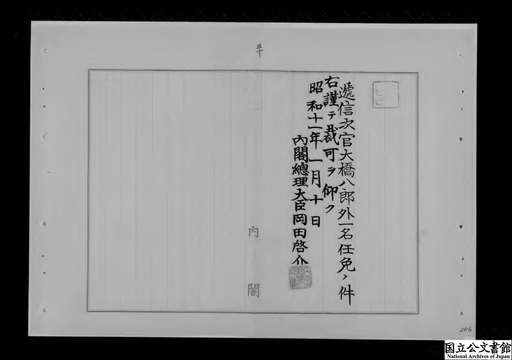 遞信次官大橋八郎外一名任免ノ件
右謹テ裁可ヲ仰ク
昭和十一年一月十日
內閣總理大臣岡田啓介
内閣
206
国立公文書館
National Archives of Japan